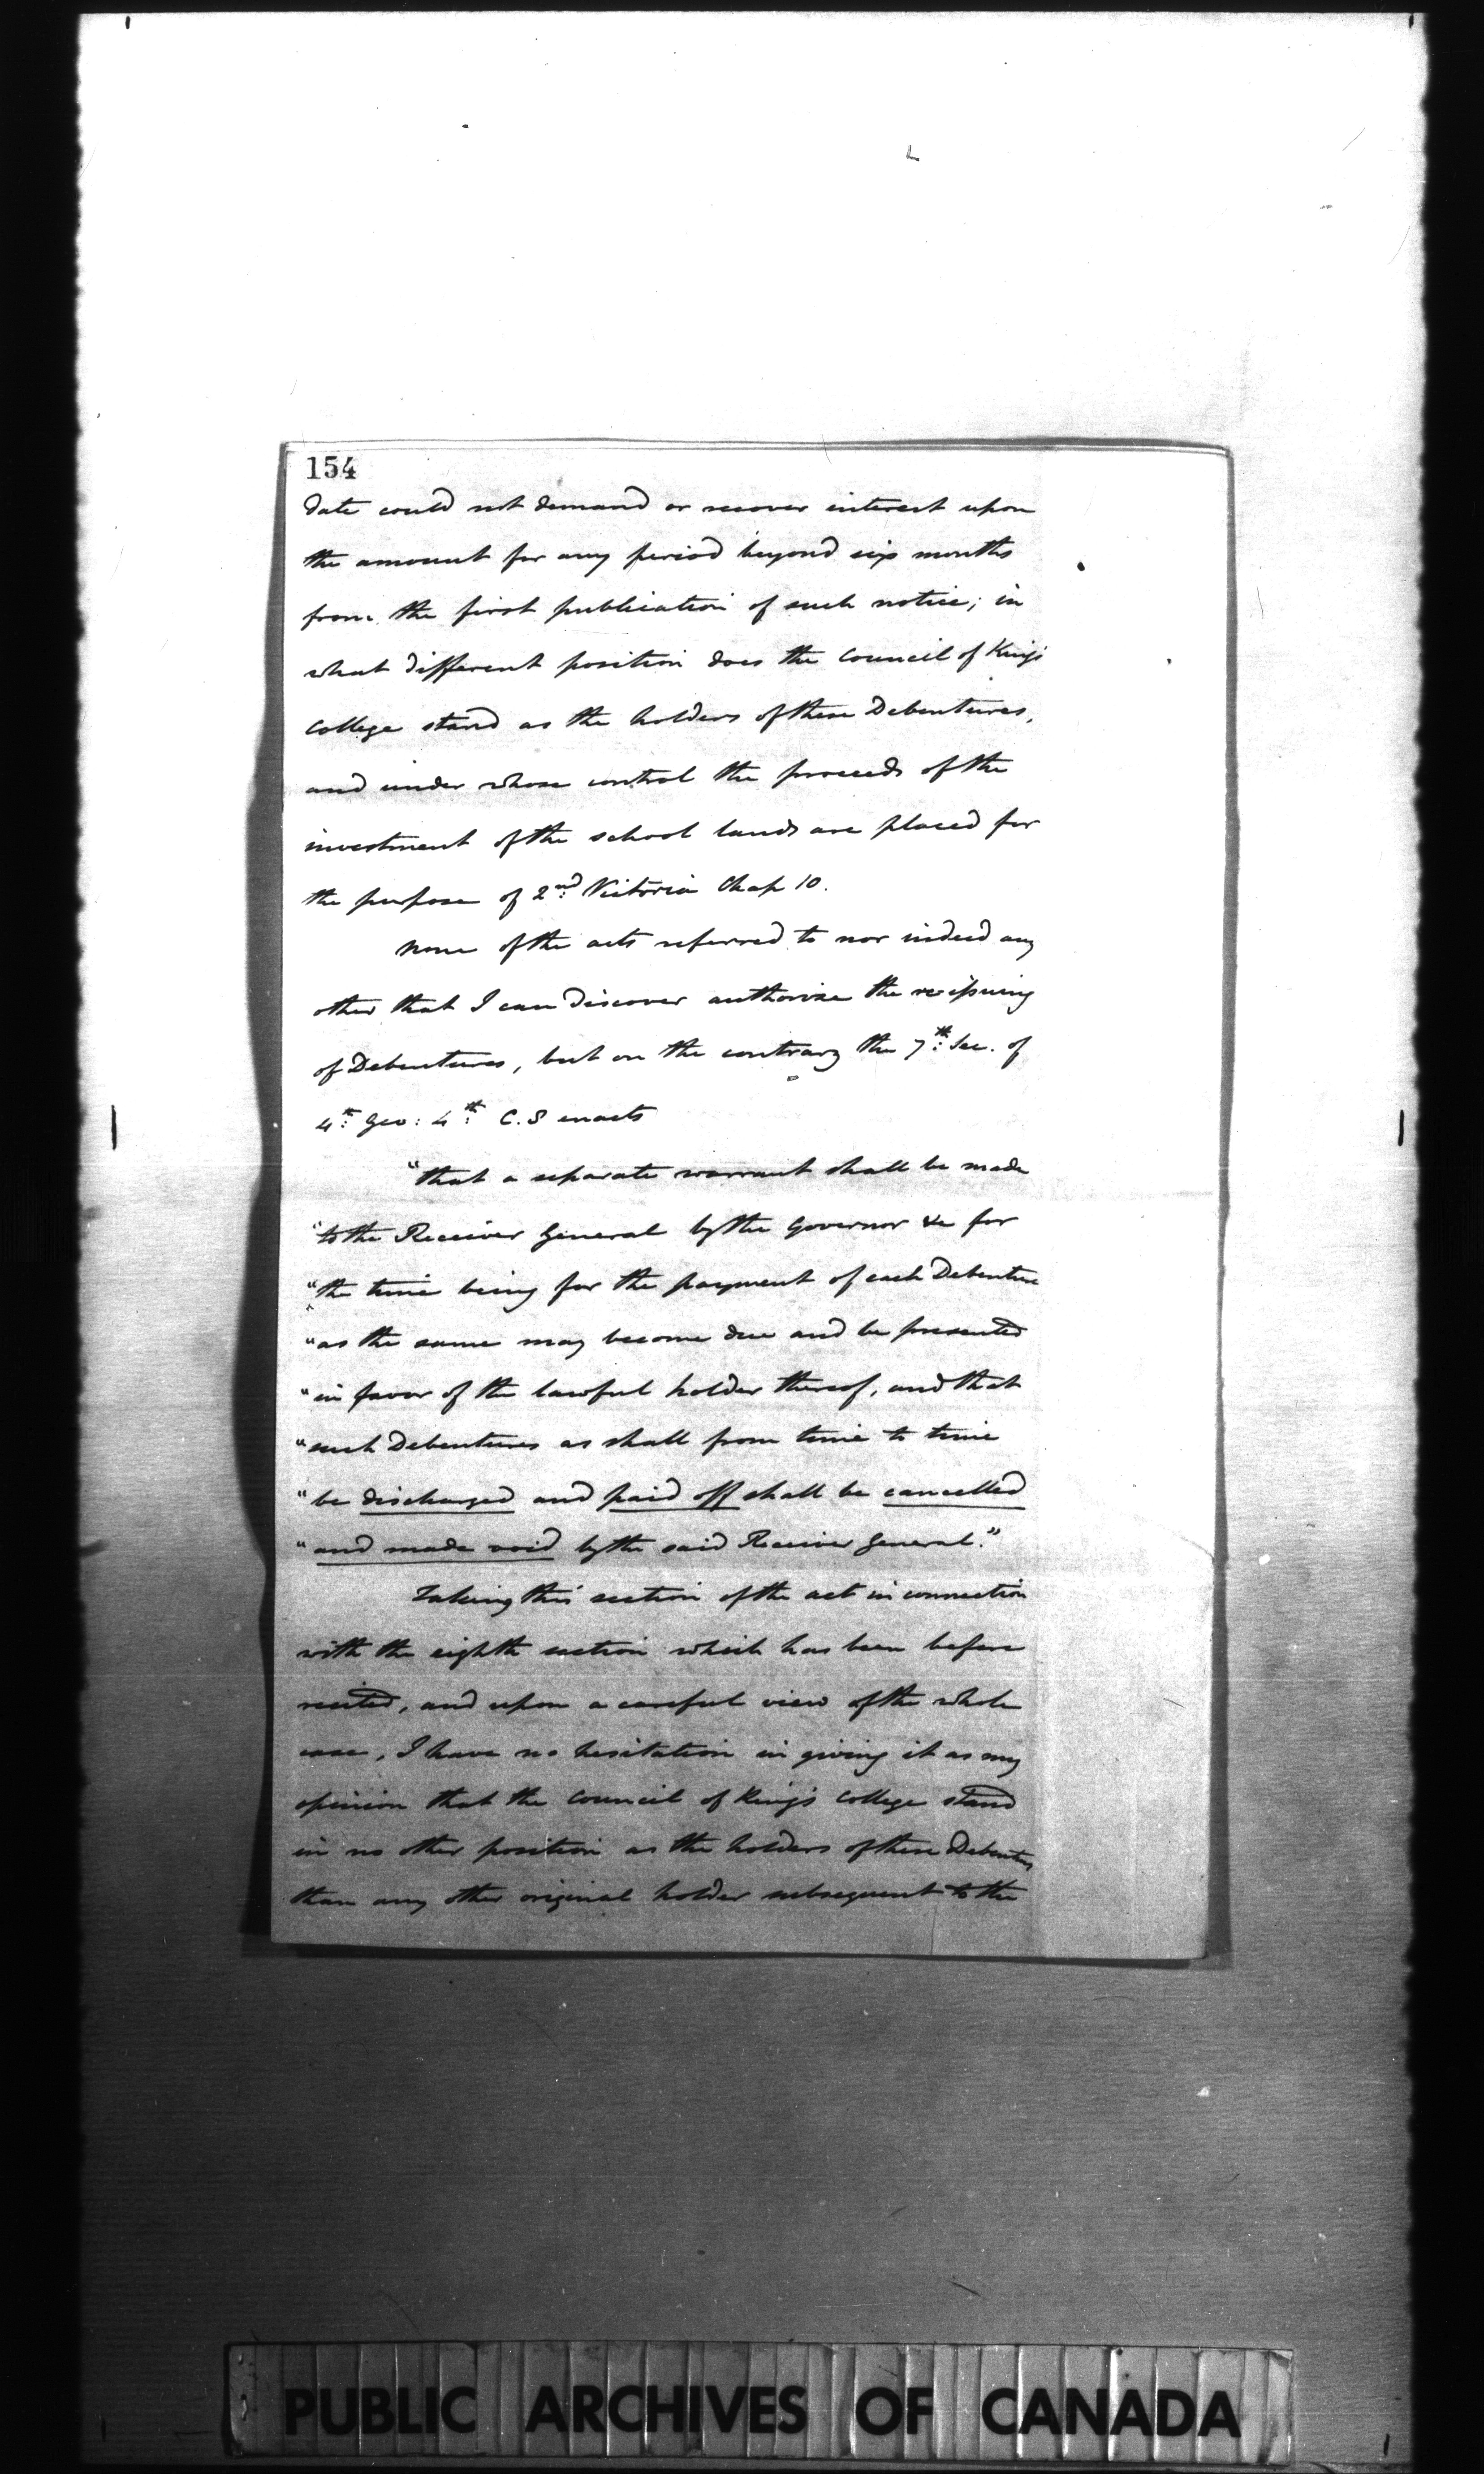 154
date could not demand or recover interest upon
the amount for any period beyond six months
from the first publication of such notice; in
what different position does the Council of Kings
College stand as the holders of these Debentures,
and under whose control the proceeds of the
investment of the school lands are placed for
the purpose of 2nd Victoria Chap 10.
None of the acts referred to nor indeed any
other that I can discover authorize the reissuing
of Debentures, but on the contrary the 7th Sec. of
4th Geo: 4th C. 8 enacts
"that a separate warrant shall be made
"to the Receiver General by the Governor &c for
"the time being for the payment of each Debenture
"as the same may become due and be presented
"in favor of the lawful holder thereof, and that
"such Debentures as shall from time to time
"be discharged and paid off shall be cancelled
"and made void by the said Receiver General."
Taking this section of the act in connection
with the eighth section which has been before
recited, and upon a careful view of the whole
case, I have no hesitation in giving it as my
opinion that the Council of King's College stand
in no other position as the holders of these Debentures
than any other original holder subsequent to the
PUBLIC ARCHIVES OF CANADA